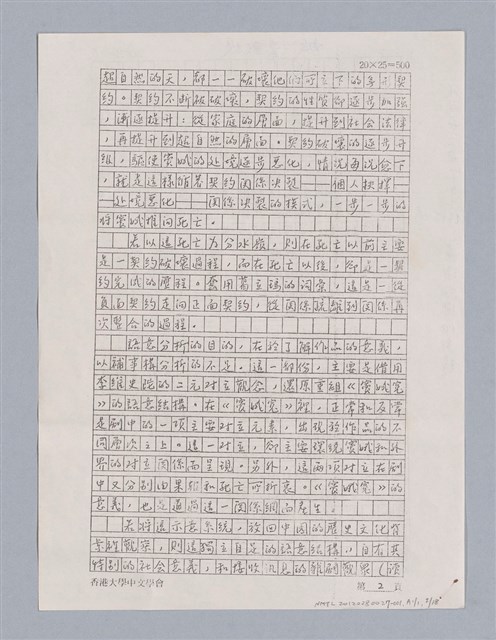 20×25=500
超自然的天，都一一破壞他們訂立下的多元契
約。契約不斷被破壞，契約的性質即逐步加強
，漸逐提升：從家庭的層面，提升到社會法律
，再提升到超自然的層面。契約破壞的逐步升
級，驅使竇娥的處境逐步惡化，情況每況愈下
，就是這樣循著契約關係決裂——個人抉擇—
—處境惡化——關係決裂的模式，一步一步的
將竇娥推向死亡。
若以這死亡為分水嶺，則在死亡以前主要
是一契約破壞過程，而在死亡以後，卻是一契
約完成的歷程。套用葛立瑪的詞彙，這是一從
負面契約走向正面契約，從關係疏離到關係再
次整合的過程。
語意分析的目的，在於了解作品的意義，
以補事構分析的不足。這一部份，主要是借用
李維史陀的二元對立觀念，還原重組《竇娥冤
》的語意結構。在《竇娥冤》裡，正常和反常
是劇中的一項主要對立元素，出現於作品的不
同層次之上。這一對立，卻主要環繞竇娥和外
界的對立關係而呈現。另外，這兩項對立在劇
中又分別由果報和死亡所折衷。《竇娥冤》的
意義，也是通過這一關係網而產生。
若將這示意系統，放回中國的歷史文化背
景去觀察，則這獨立自足的語意結構，自有其
特別的社會意義，和接收凡見的雜劇觀眾（讀
香港大學中文學會
第 2 頁